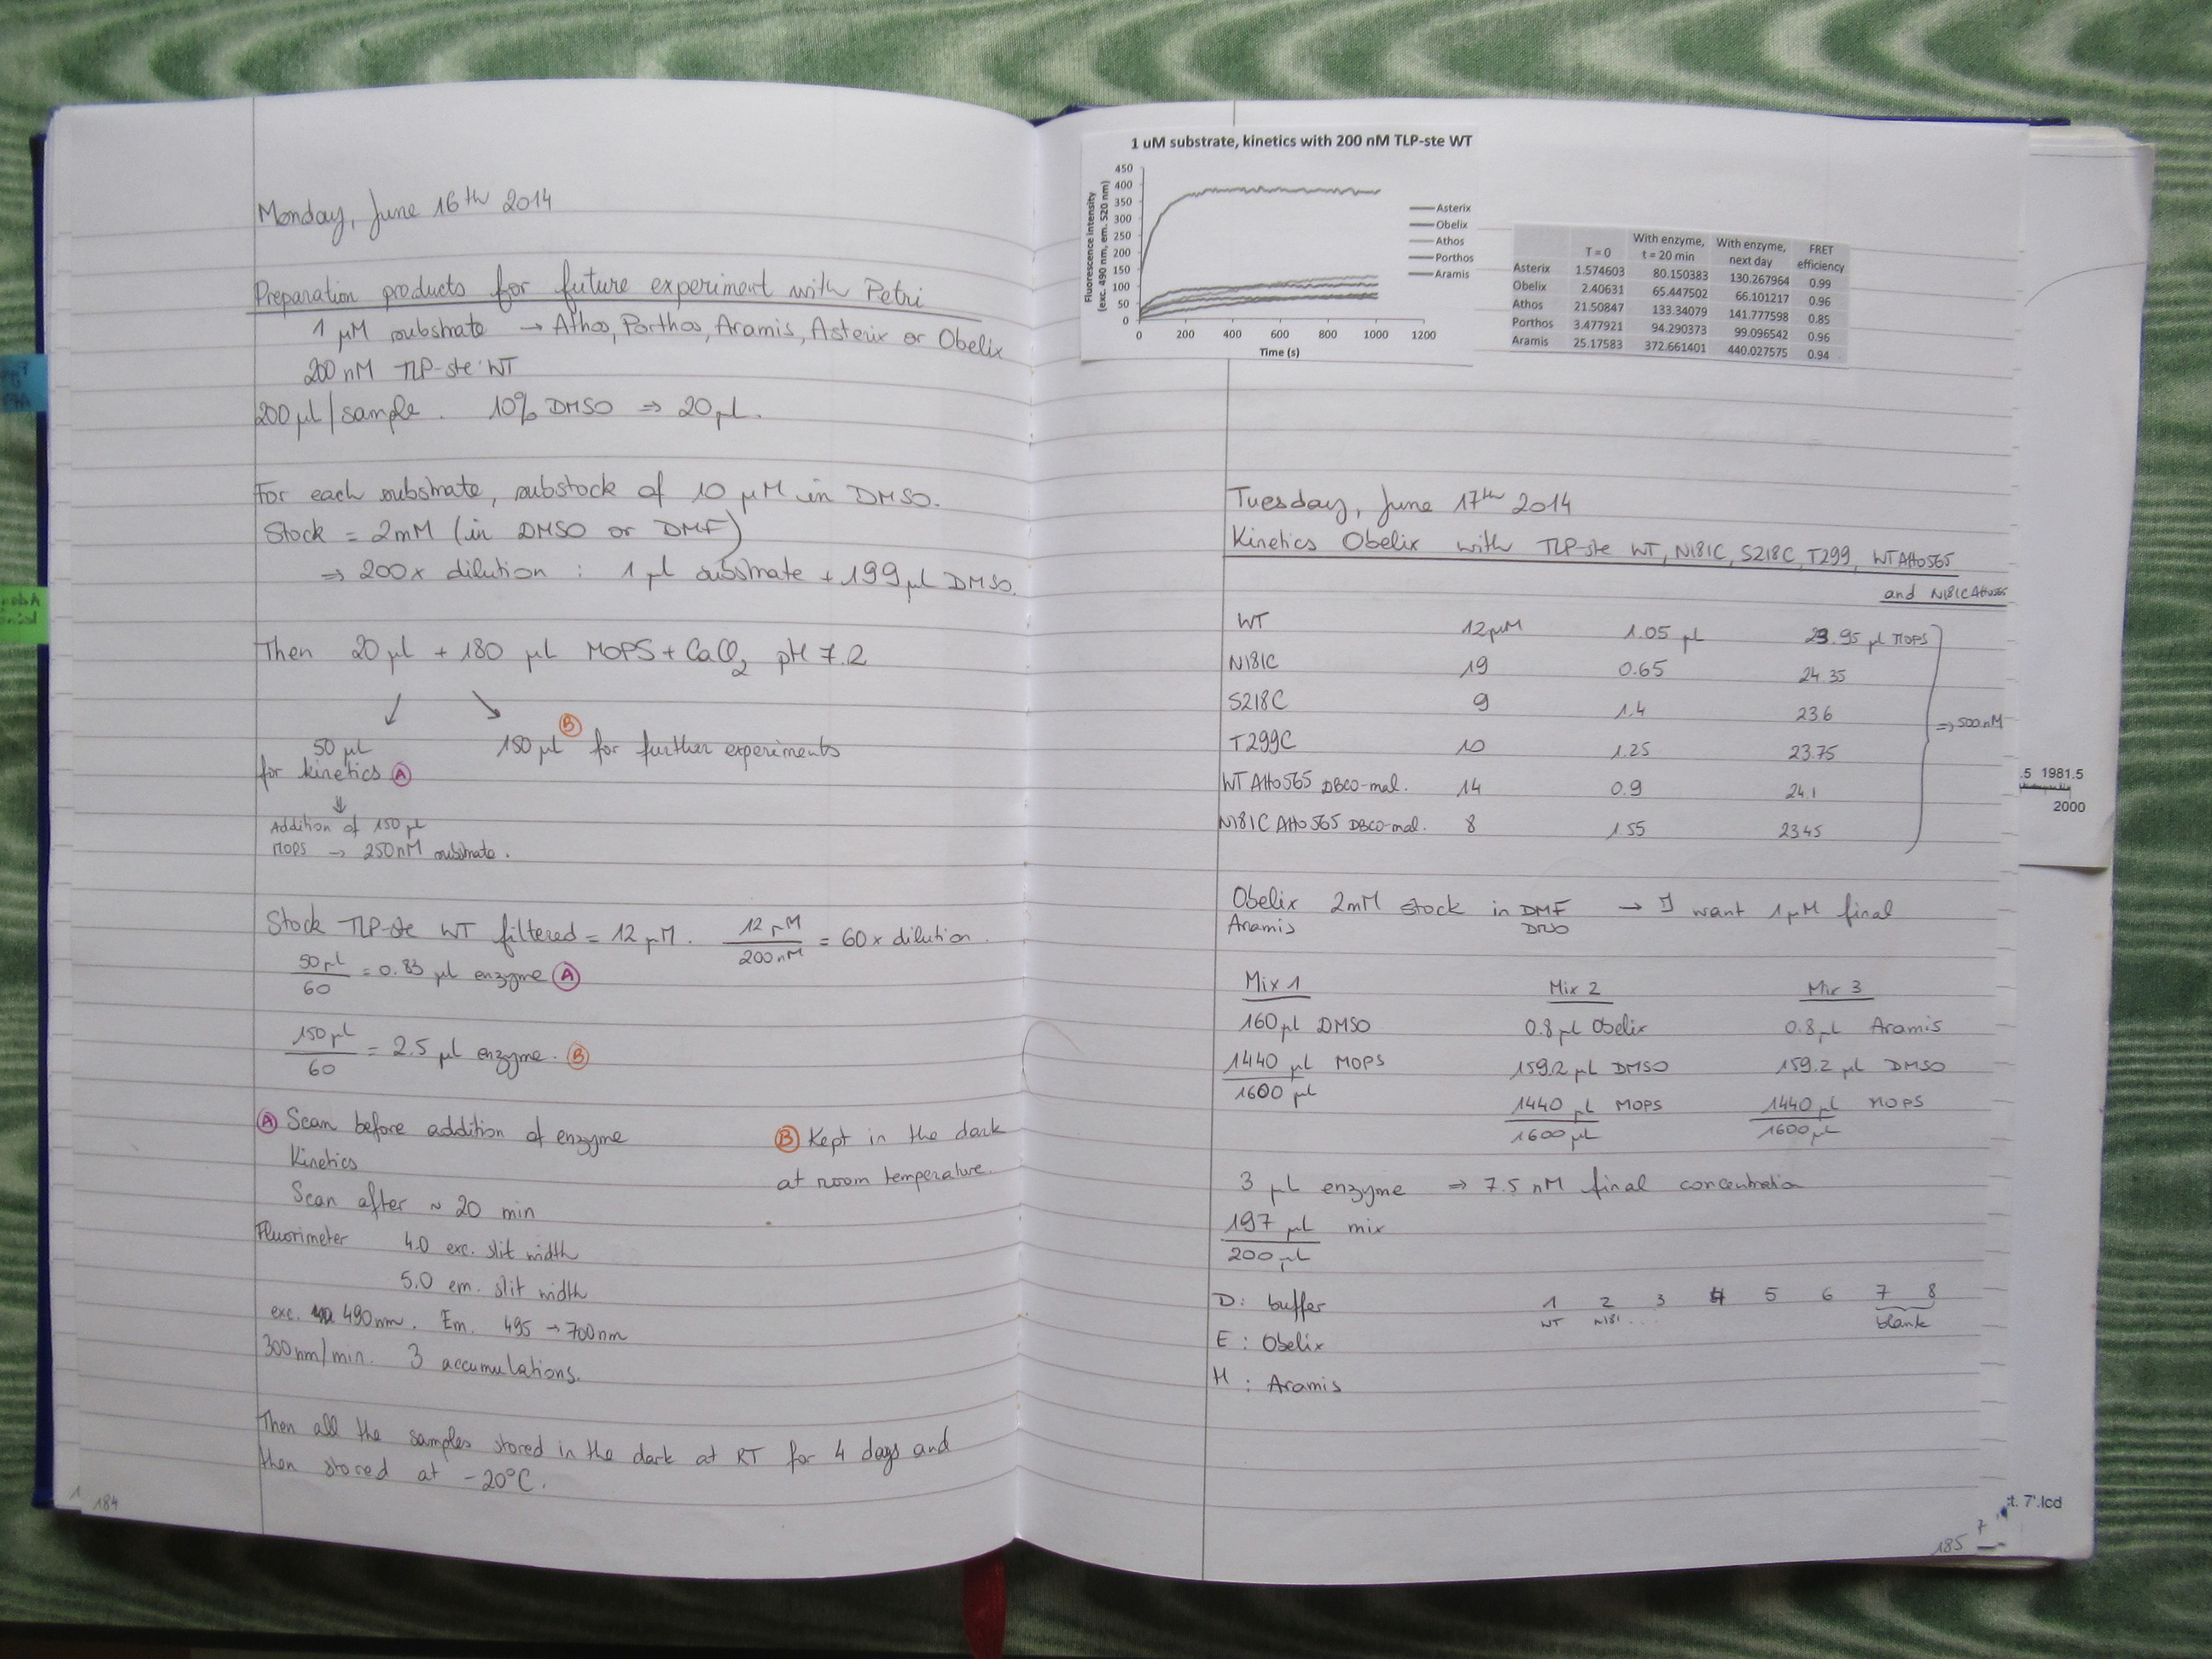 Monday, June 16th 2014
Preparation products for future experiment with Petri
1 µM substrate → Athos, Porthos, Aramis, Asterix or Obelix
200 nM TLP-ste WT
200 µl/sample. 10% DMSO ⇒ 20 µl.
For each substrate, substock of 10 µM in DMSO.
Stock = 2mM (in DMSO or DMF)
⇒ 200x dilution : 1 µl substrate + 199 µl DMSO.
Then 20 µl + 180 µl MOPS + CaCl2 pH 7.2
50 µl for kinetics Ⓐ
150 µl Ⓑ for further experiments
⇓
Addition of 150 µl
MOPS → 250 nM substrate.
Stock TLP-ste WT filtered = 12 µM. 12 µM / 200 nM = 60 x dilution.
50 µl / 60 = 0.83 µl enzyme Ⓐ
150 µl / 60 = 2.5 µl enzyme. Ⓑ
Ⓐ Scan before addition of enzyme
Kinetics
Scan after ~ 20 min
Ⓑ Kept in the dark
at room temperature.
Fluorimeter 4.0 exc. slit width
5.0 em. slit width
exc. 490nm. Em. 495 → 700nm
300nm/min. 3 accumulations.
Then all the samples stored in the dark at RT for 4 days and
then stored at -20°C.
1 184
1 uM substrate, kinetics with 200 nM TLP-ste WT
Fluorescence intensity
(exc. 490 nm, em. 520 nm)
450
400
350
300
250
200
150
100
50
0
0 200 400 600 800 1000 1200
Time (s)
Asterix
Obelix
Athos
Porthos
Aramis
T = 0 With enzyme, t = 20 min With enzyme, next day FRET efficiency
Asterix 1.574603 80.150383 130.267964 0.99
Obelix 2.40631 65.447502 66.101217 0.96
Athos 21.50847 133.34079 141.777598 0.85
Porthos 3.477921 94.290373 99.096542 0.96
Aramis 25.17583 372.661401 440.027575 0.94
Tuesday, June 17th 2014
Kinetics Obelix with TLP-ste WT, N181C, S218C, T299, WT Atto565
and N181C Atto565
WT 12µM 1.05 µl 23.95 µl MOPS
N181C 19 0.65 24.35
S218C 9 1.4 23.6
⇒ 500 nM
T299C 10 1.25 23.75
WT Atto565 DBCO-mal. 14 0.9 24.1
N181C Atto565 DBCO-mal. 8 1.55 23.45
Obelix 2mM stock in DMF → I want 1 µM final
Aramis DMSO
Mix 1 Mix 2 Mix 3
160 µl DMSO 0.8 µl Obelix 0.8 µl Aramis
1440 µl MOPS 159.2 µl DMSO 159.2 µl DMSO
1600 µl 1440 µl MOPS 1440 µl MOPS
1600 µl 1600 µl
3 µl enzyme ⇒ 7.5 nM final concentration
197 µl mix
200 µl
D: buffer 1 2 3 4 5 6 7 8
WT N181 ... blank
E: Obelix
H: Aramis
185
.5 1981.5
2000
t. 7'.lcd
7